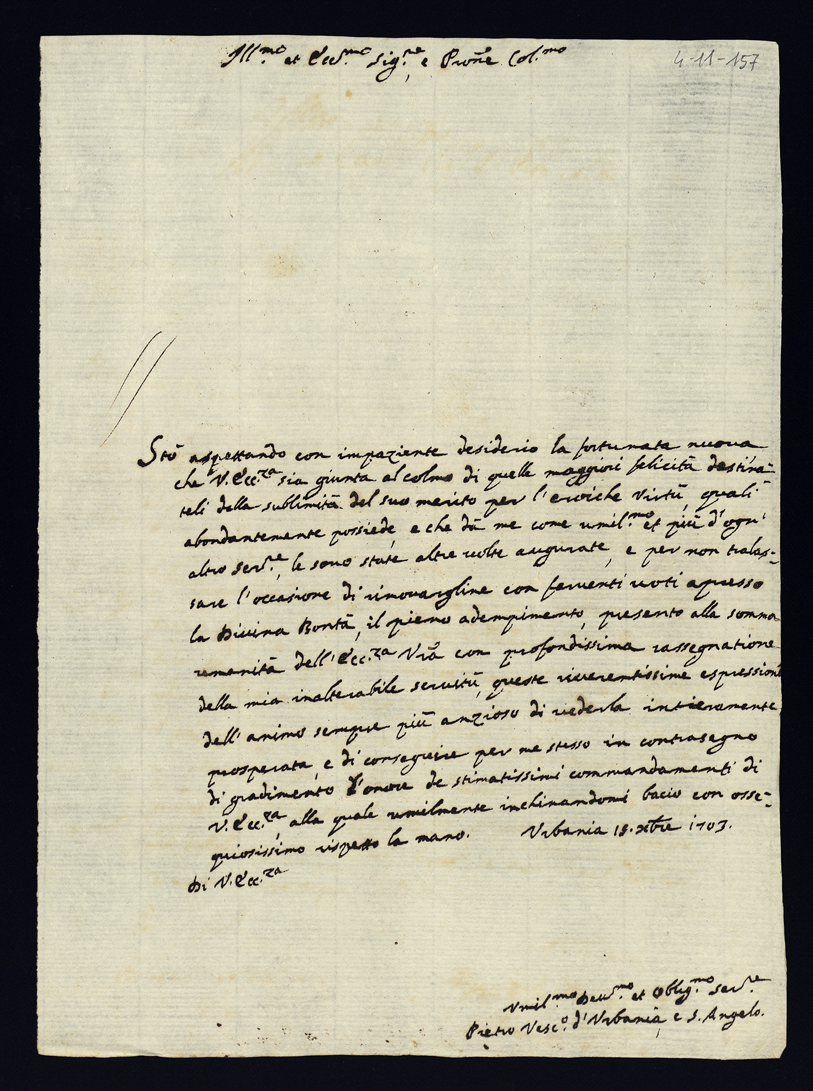 Ill.mo et Ecc.mo Sig.re e Prōne Col.mo
4-11-157
Stò aspettando con impaziente desiderio la fortunata nuova
che V. Ecc.za sia giunta al colmo di quelle maggiori felicità destina-
teli della sublimità del suo merito per l'eroiche virtù, quali
abondantemente possiede, e che dà me come umil.mo et più d'ogni
altro ser.re, le sono state altre volte augurate, e per non tralas-
sare l'occasione di rinovargline con ferventi voti apresso
la Divina Bontà, il pieno adempimento, presento alla somma
umanità dell'Ecc.za Vrā con profondissima rassegnatione
della mia inalterabile servitù, queste riverentissime espressioni
dell'animo sempre più anzioso di vederla intieramente
prosperata, e di conseguire per me stesso in contrasegno
di gradimento l'onore de stimatissimi commandamenti di
V. Ecc.za alla quale umilmente inchinandomi bacio con osse-
quiosissimo rispetto la mano. Urbania 15. Xbre 1703.
Di V. Ecc.za
Umil.mo Dev.mo et Oblig.mo Ser.re
Pietro Vesc.o d'Urbania, e S. Angelo.